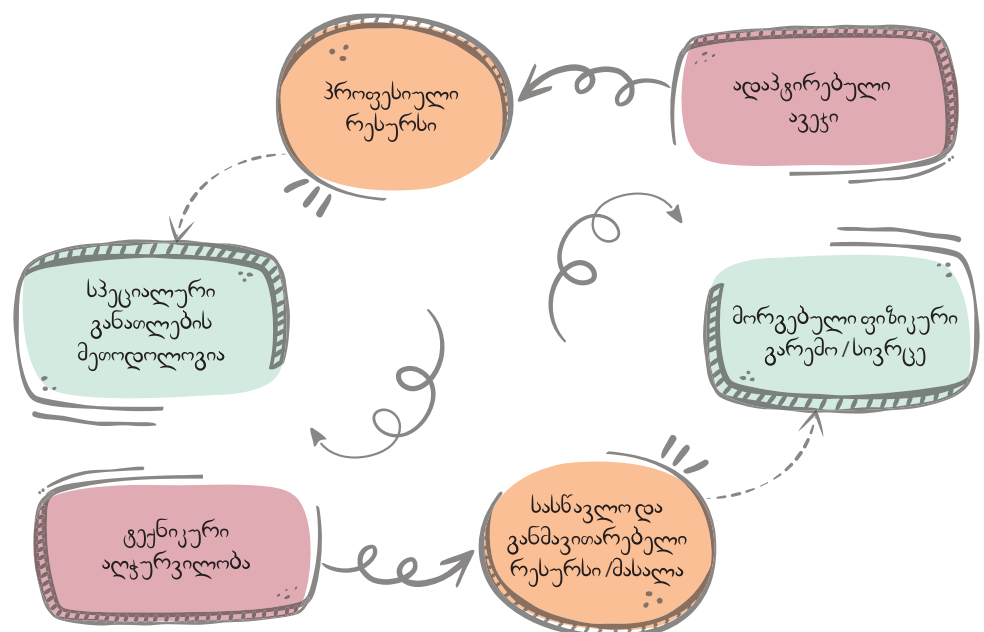 პროფესიული
რესურსი
ადაპტირებული
ავეჯი
სპეციალური
განათლების
მეთოდოლოგია
მორგებული ფიზიკური
გარემო / სივრცე
ტექნიკური
აღჭურვილობა
სასწავლო და
განმავითარებელი
რესურსი /მასალა